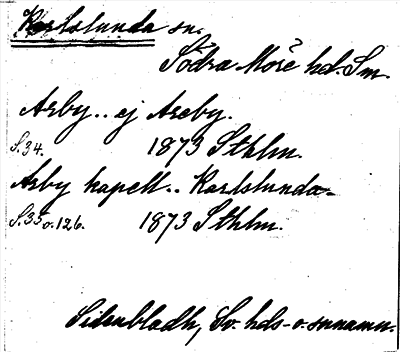 Karlslunda sn.
Södra Möre hd. Sm.
Arby.. ej Areby.
S. 34. 1873 Sthlm.
Arby kapell.. Karlslunda
S. 35 o. 126. 1873 Sthlm.
Sidenbladh, Sv. hds- o. snnamn.